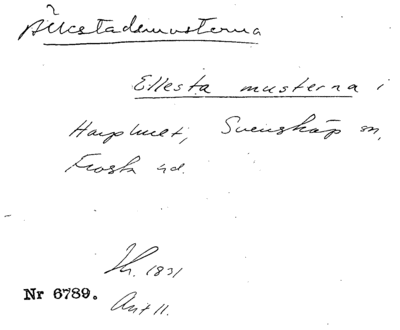 Ällestadsmusterna
Ellesta musterna i
Harphult, Svensköp sn,
Frosta hd.
Th. 1831
Nr 6789.
Akt 11.